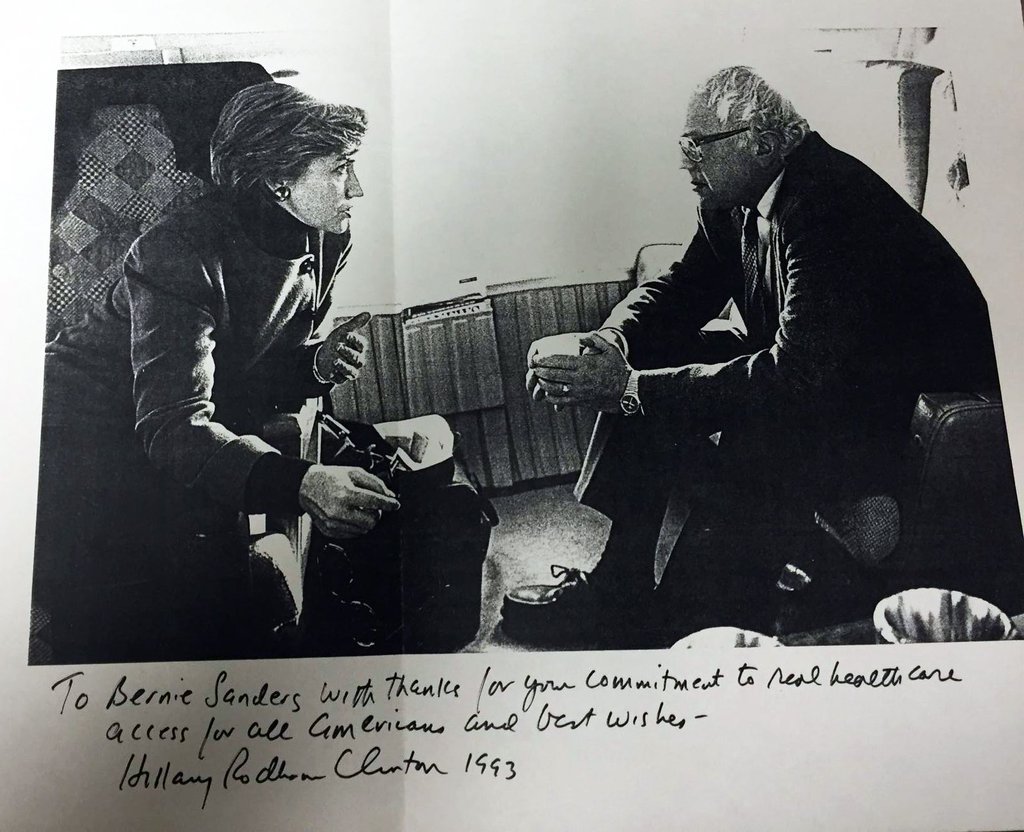 To Bernie Sanders with thanks for your commitment to real healthcare
access for all Americans and best wishes -
Hillary Rodham Clinton 1993